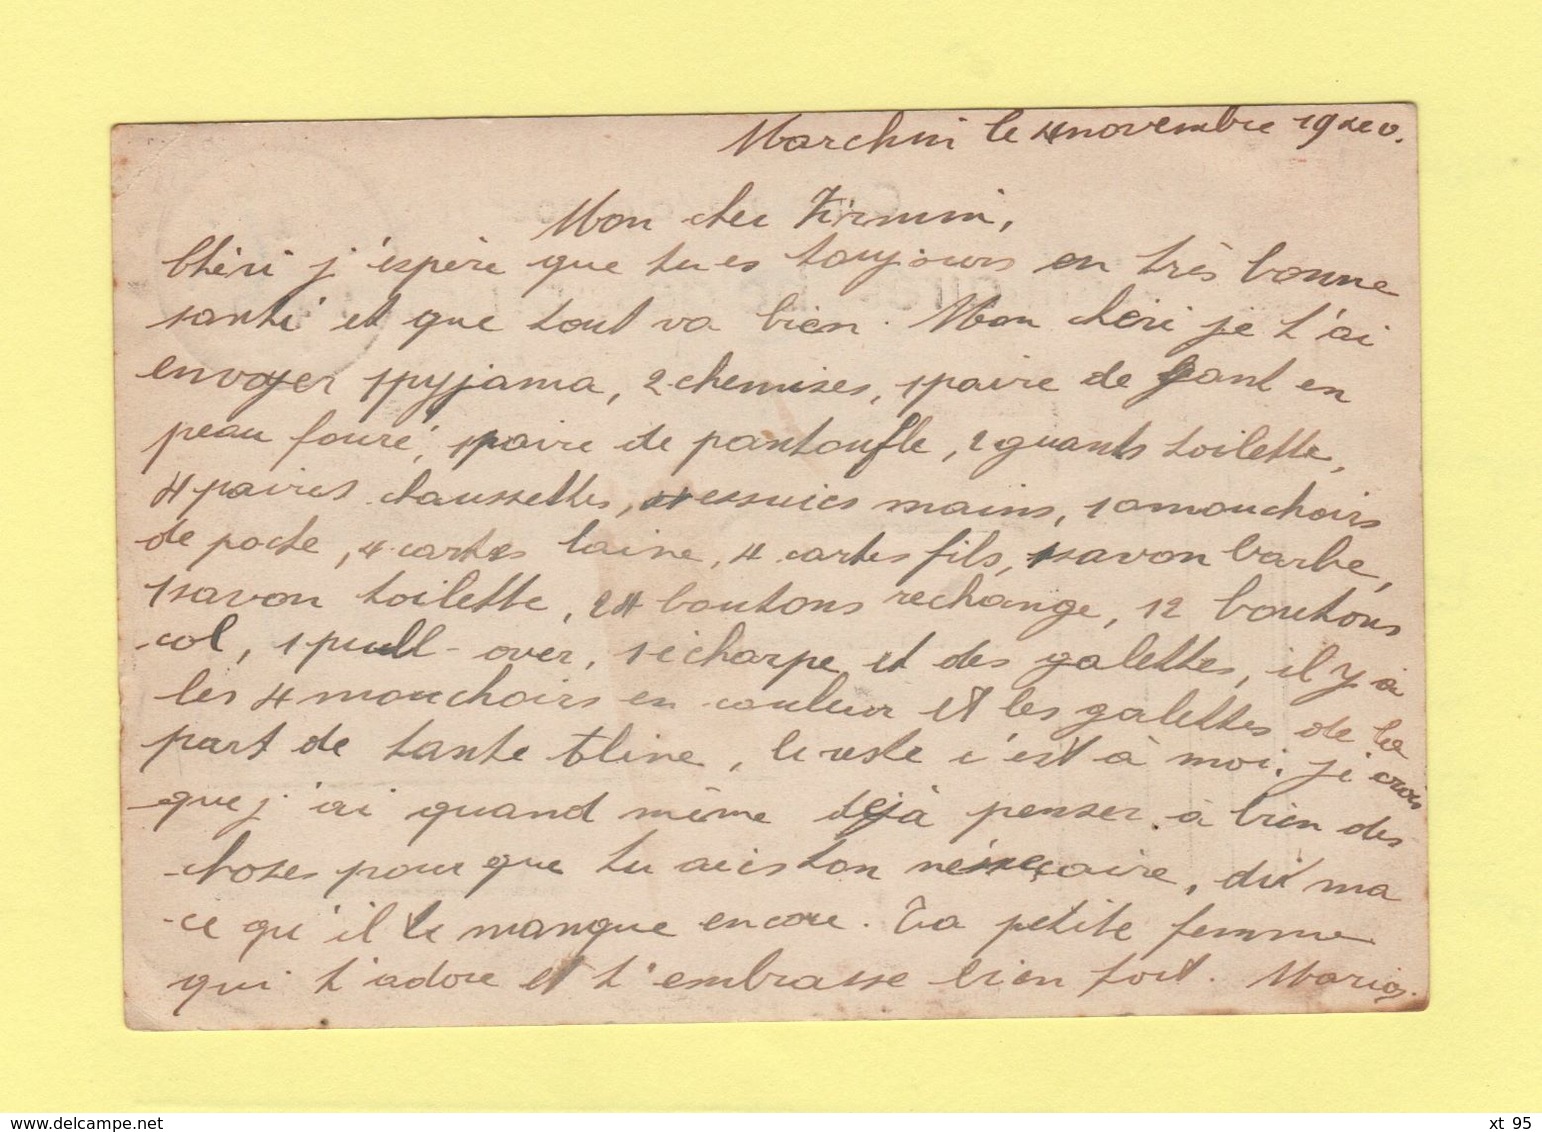 Marchin le 4 novembre 1940.
Mon cher Firmin,
Chéri j'espère que tu es toujours en très bonne
santé et que tout va bien. Mon chéri je t'ai
envoyer 1 pyjama, 2 chemises, 1 paire de gant en
peau fouré, 1 paire de pantoufle, 2 guants toilette,
4 paires chaussettes, 4 essuies mains, 10 mouchoirs
de poche, 4 cartes laine, 4 cartes fils, 1 savon barbe,
1 savon toilette, 24 boutons rechange, 12 boutons
col, 1 pull-over, 1 écharpe et des galettes, il y a
les 4 mouchoirs en couleur et les galettes de la
part de tante Eline, le reste c'est à moi. je crois
que j'ai quand même déjà penser à bien des
choses pour que tu aies ton nésseçaire, dit ma
ce qu'il te manque encore. Ta petite femme
qui t'adore et t'embrasse bien fort.
www.delcampe.net
xt 95